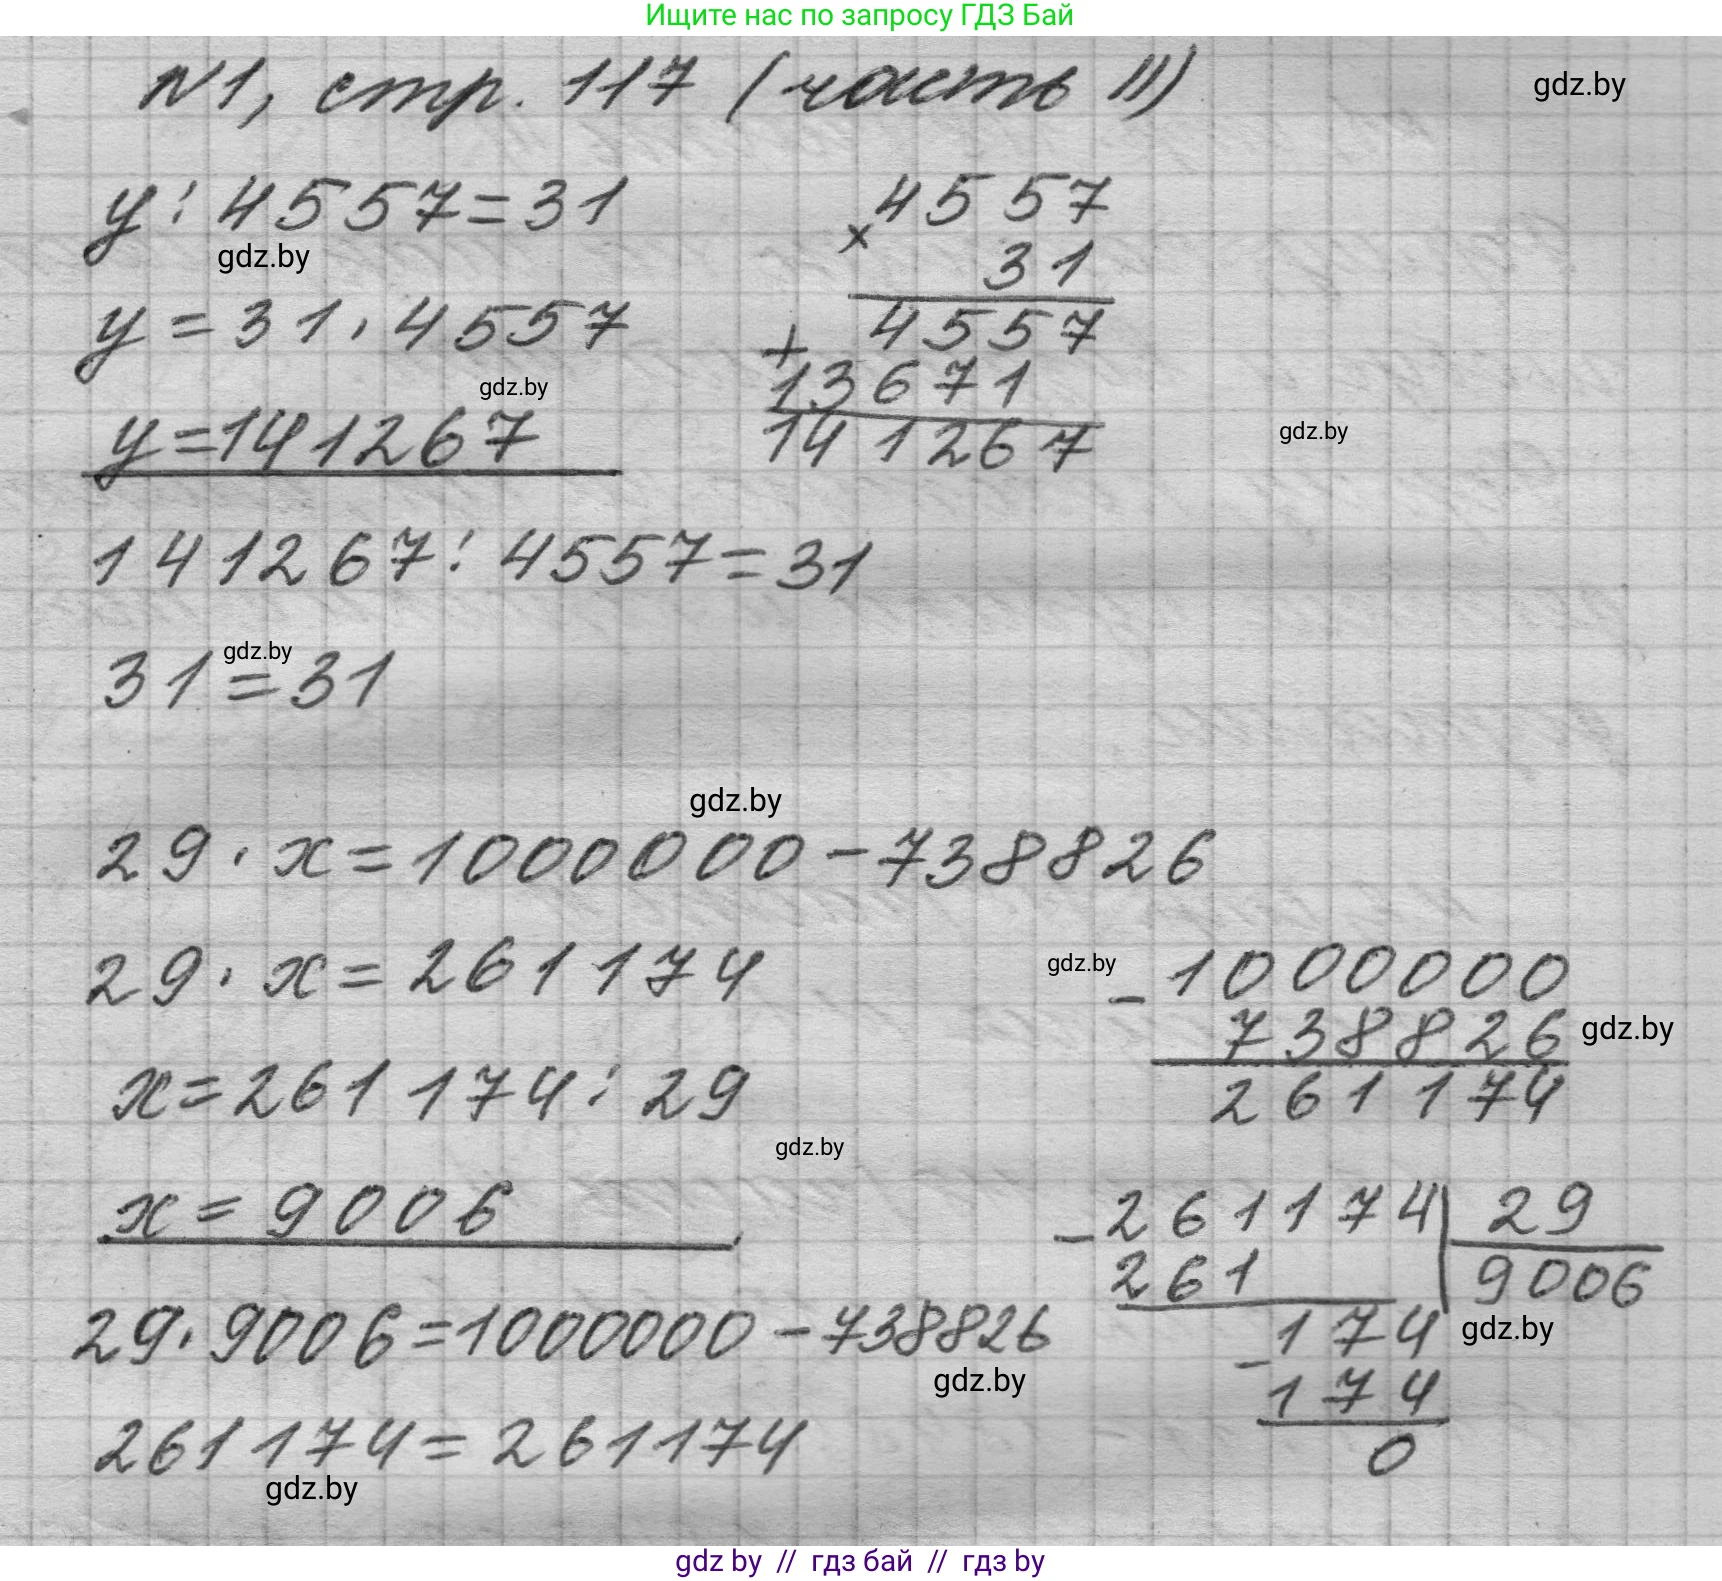 Ищите нас по запросу ГДЗ Бай
N1, стр. 117 (часть II)
gdz.by
y : 4557 = 31
gdz.by
y = 31 · 4557
gdz.by
y = 141267
4557
× 31
4557
+
13671
141267
gdz.by
141267 : 4557 = 31
gdz.by
31 = 31
gdz.by
29 · x = 1000000 - 738826
29 · x = 261174
x = 261174 : 29
gdz.by
x = 9006
gdz.by
- 1000000
738826 gdz.by
261174
- 261174 | 29
261 | 9006
174 gdz.by
- 174
0
29 · 9006 = 1000000 - 738826
gdz.by
261174 = 261174
gdz.by
gdz by // гдз бай // гдз by